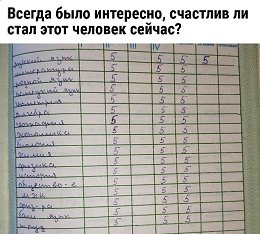 Всегда было интересно, счастлив ли
стал этот человек сейчас?
II IV
русский язык 5 5 5 5
литература 5 5 5
родной язык 5 5 5
немецкий язык 5 5 5
геометрия 5 5 5
алгебра 5 5 5
география 5 5 5
экономика 5 5 5
биология 5 5 5
химия 5 5 5
физика 5 5 5
история 5 5 5
общество-е 5 5 5
МХК 5 5 5
физ-ра 5 5 5
баш язык 5 5 5
труд 5 5